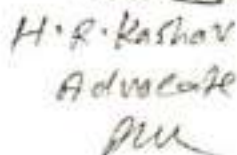 H.R. Kashav
Advocate